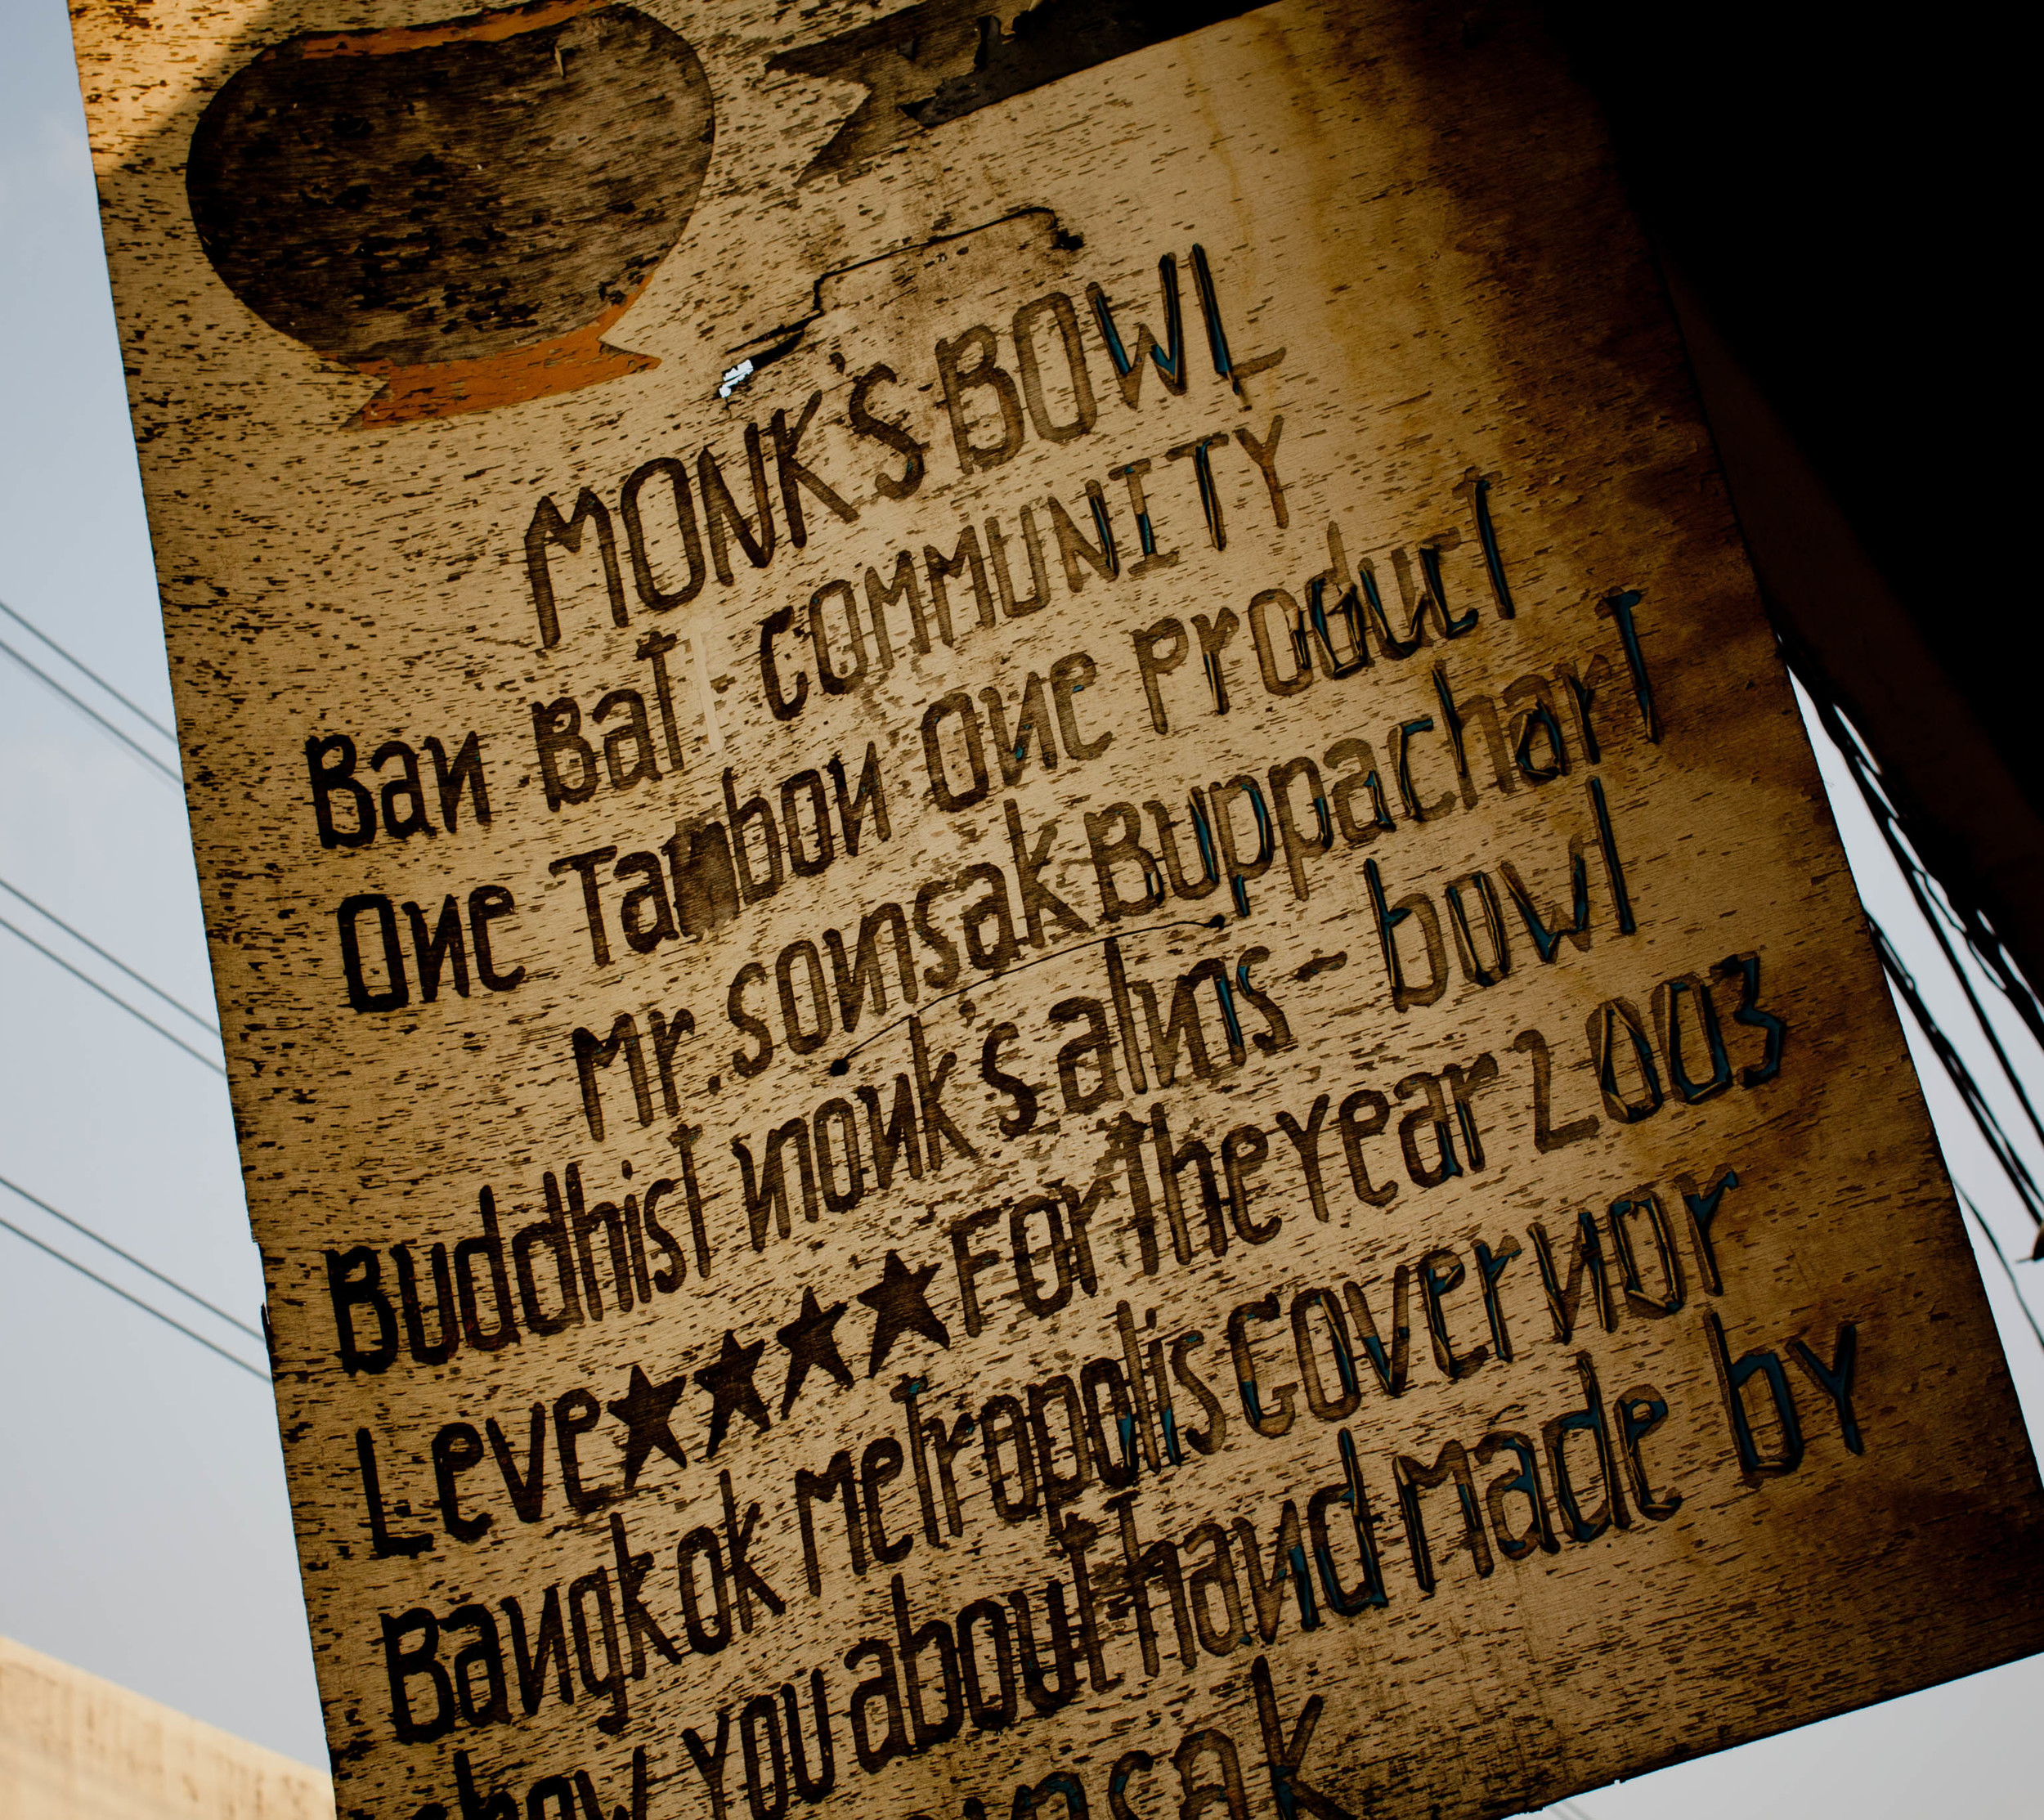 MONK'S BOWL
Ban Bat COMMUNITY
One Tambon One Product
Mr. Sonsak Buppachart
Buddhist monk's alms - bowl
Leve★★★★ For The Year 2003
Bangkok Metropolis Governor
show you about hand made by